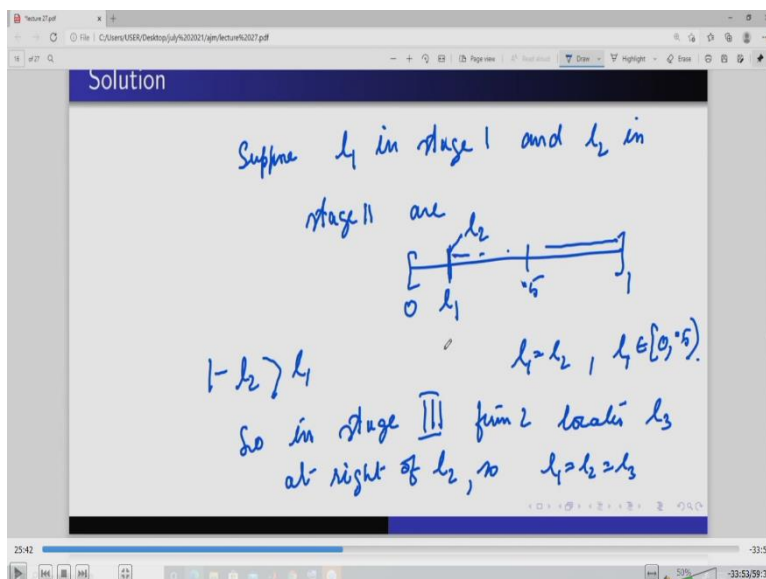 lecture 27.pdf
File | C:/Users/USER/Desktop/july%202021/ajm/lecture%2027.pdf
of 27
Page view
Read aloud
Draw
Highlight
Erase
Solution
Suppose l₁ in stage I and l₂ in
stage II are
l₂
0 l₁ .5 1
1-l₂ > l₁ l₁=l₂, l₁∈[0,.5).
So in stage III firm 2 locates l₃
at right of l₂, so l₁=l₂=l₃
25:42
50%